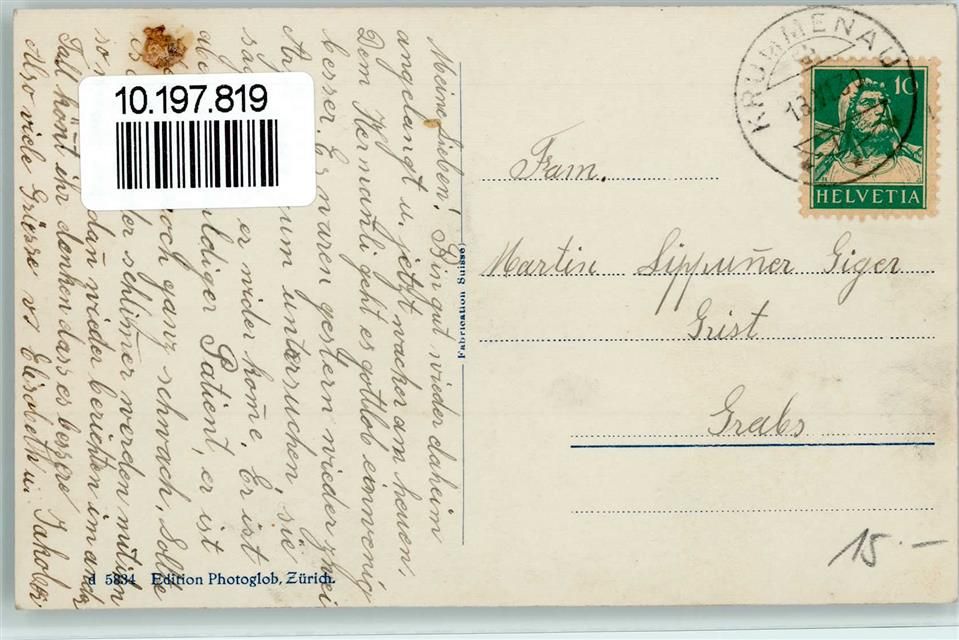 10.197.819
Meine Lieben! Bin gut wieder daheim
angelangt u. jetzt wacker am heuen,
Dem Hermanli geht es gottlob ein wenig
besser. Es waren gestern wieder zwei
um untersuchen, sie
er wider kome. Er ist
uldiger Patient, er ist
och ganz schwach, Sollte
er schlim̅er werden mit ihm
dan̅ wieder berichten im and
Fall kön̅t ihr denken dass es bessre
Also viele Grüsse vo Elisabeth u. Jakober
d 5834 Edition Photoglob, Zürich.
Fabrication Suisse
KRUMMENAU
10
HELVETIA
Fam.
Martin Lippun̅er Giger
Grist
Grabs
15.-